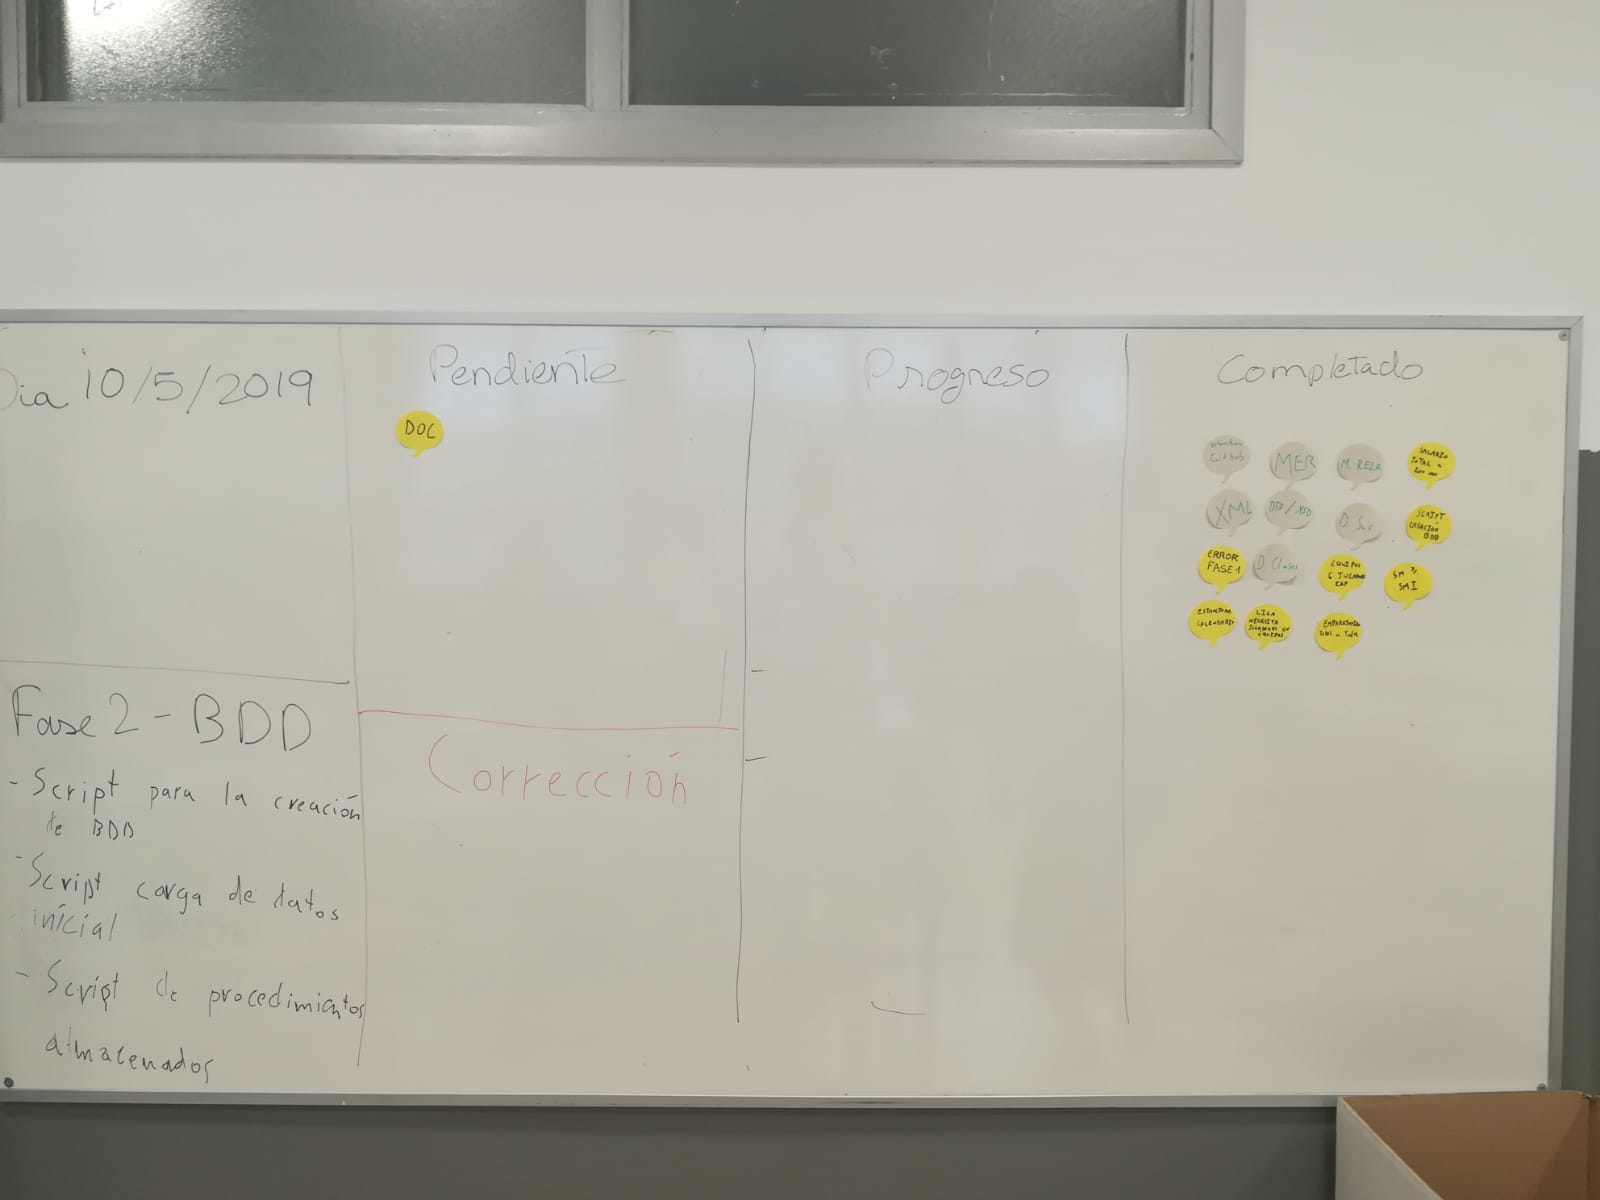 Dia 10/5/2019
Fase 2 - BDD
- Script para la creación
de BDD
- Script carga de datos
inicial
- Script de procedimientos
almacenados
Pendiente
DOC
Corrección
Progreso
Completado
GitHub
MER
M. RELA
SALARIO
TOTAL
XML
DTD/XSD
SCRIPT
CREACIÓN
BDD
ERROR
FASE 1
D Clases
EQUIPOS
6 JUGADORES
SMI
ESTRUCTURA
CALENDARIO
LIGA
NECESITA
JUGADORES EN
EQUIPOS